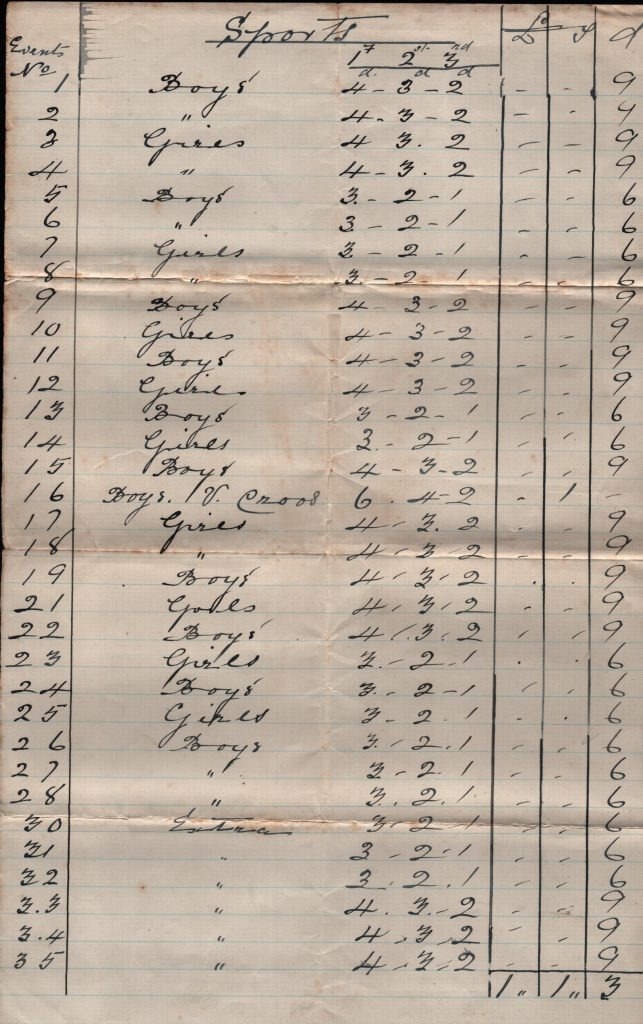 Sports £ s d
Events No 1st 2nd 3rd
d. d d
1 Boys 4 - 3 - 2 - - 9
2 " 4 - 3 - 2 - - 9
3 Girls 4 3. 2 - - 9
4 " 4 - 3. 2 - - 9
5 Boys 3. - 2 - 1 - - 6
6 " 3 - 2 - 1 - - 6
7 Girls 3 - 2 - 1 - - 6
8 " 3. - 2. 1 - - 6
9 Boys 4 - 3 - 2 - - 9
10 Girls 4 - 3 - 2 - - 9
11 Boys 4 - 3 - 2 - - 9
12 Girls 4 - 3 - 2 - - 9
13 Boys 3 - 2 - 1 - - 6
14 Girls 3. - 2 - 1 - - 6
15 Boys 4 - 3 - 2 - - 9
16 Boys. V. 6. 4 - 2 - 1 -
17 Girls 4 - 3. 2 - - 9
18 " 4 - 3 - 2 - - 9
19 Boys 4 - 3 - 2 . . 9
21 Girls 4 - 3 - 2 - - 9
22 Boys 4 - 3 - 2 - - 9
23 Girls 3. - 2. 1 . . 6
24 Boys 3. - 2 - 1 - - 6
25 Girls 3. - 2. 1 - . 6
26 Boys 3. - 2. 1 - - 6
27 " 3 - 2. 1 - - 6
28 " 3. 2. 1 - - 6
30 Extra 3 - 2. 1 - - 6
31 " 3 - 2 - 1 - - 6
32 " 3. 2. 1 - - 6
3.3 " 4. 3. - 2 - - 9
3.4 " 4. 3. 2 - - 9
35 " 4. 3. 2 - - 9
1 " 1 " 3